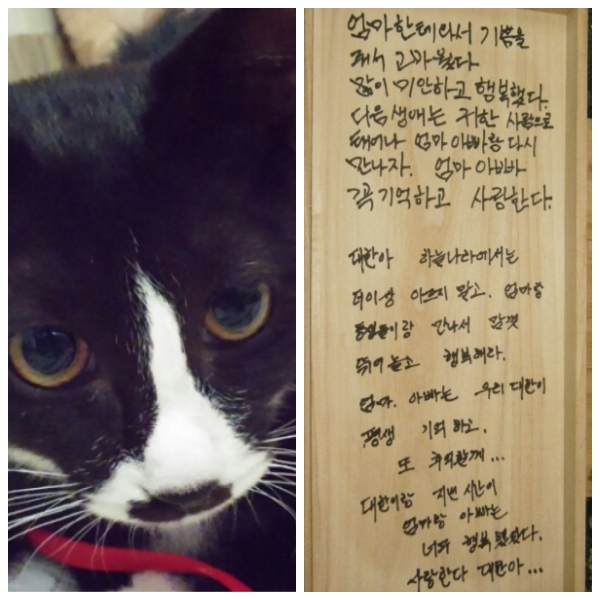 엄마한테와서 기쁨을
줘서 고마웠다
많이 미안하고 행복했다.
다음생애는 귀한 사람으로
태어나 엄마 아빠랑 다시
만나자. 엄마 아빠가
꼭 기억하고 사랑한다.
대한아 하늘나라에서는
더이상 아프지 말고. 엄마랑
동생들이랑 만나서 맘껏
뛰어놀고 행복해라.
엄마. 아빠는 우리 대한이
평생 기억하고.
또 추억할께...
대한이랑 지낸 시간이
엄마랑 아빠는
너무 행복했었다.
사랑한다 대한아...